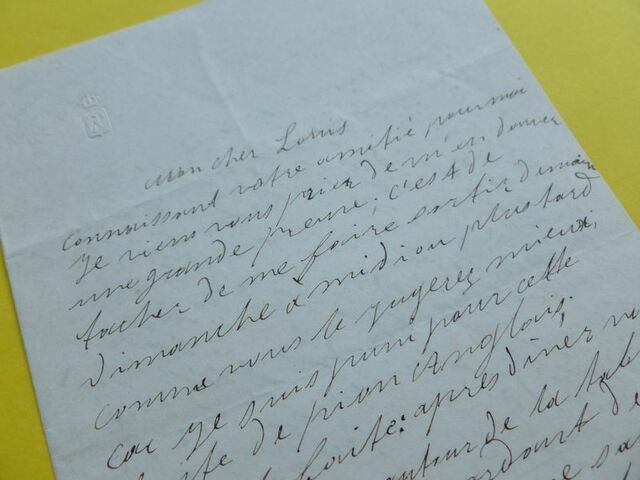 Mon cher Louis
connaissant votre amitié pour moi
je viens vous prier de m'en donner
une grande preuve, c'est de
tacher de me faire sortir demain
Dimanche à midi ou plus tard
comme vous le jugerez mieux,
car je suis puni pour cette
de pion anglais.
après dîner
autour de la